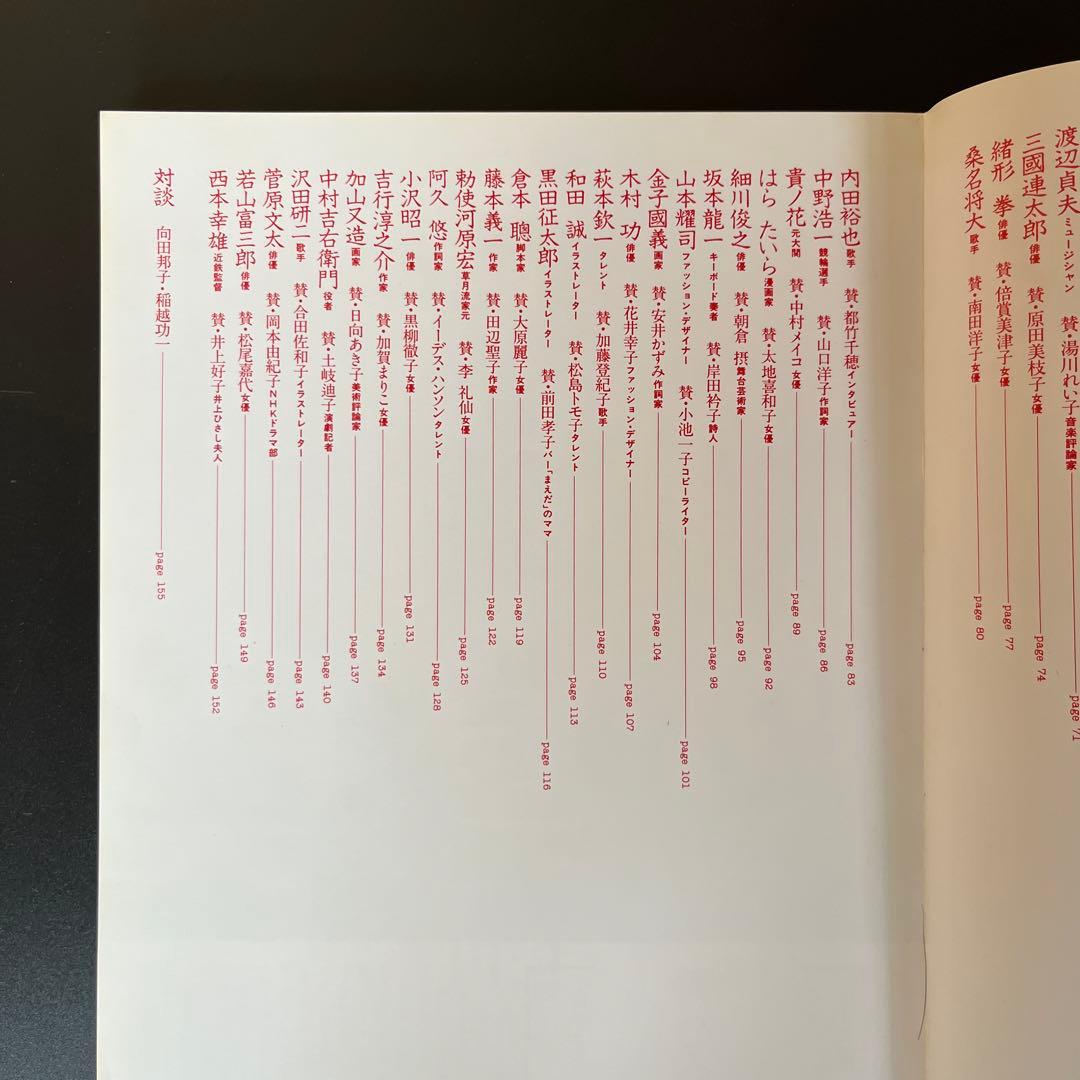 渡辺貞夫 ミュージシャン 賛・湯川れい子 音楽評論家 page 71
三國連太郎 俳優 賛・原田美枝子 女優 page 74
緒形 拳 俳優 賛・倍賞美津子 女優 page 77
桑名将大 歌手 賛・南田洋子 女優 page 80
内田裕也 歌手 賛・都竹千穂 インタビュアー page 83
中野浩一 競輪選手 賛・山口洋子 作詞家 page 86
貴ノ花 元大関 賛・中村メイコ 女優 page 89
はら たいら 漫画家 賛・太地喜和子 女優 page 92
細川俊之 俳優 賛・朝倉 摂 舞台芸術家 page 95
坂本龍一 キーボード奏者 賛・岸田衿子 詩人 page 98
山本耀司 ファッション・デザイナー 賛・小池一子 コピーライター page 101
金子國義 画家 賛・安井かずみ 作詞家 page 104
木村 功 俳優 賛・花井幸子 ファッション・デザイナー page 107
萩本欽一 タレント 賛・加藤登紀子 歌手 page 110
和田 誠 イラストレーター 賛・松島トモ子 タレント page 113
黒田征太郎 イラストレーター 賛・前田孝子 バー「まえだ」のママ page 116
倉本 聰 脚本家 賛・大原麗子 女優 page 119
藤本義一 作家 賛・田辺聖子 作家 page 122
勅使河原宏 草月流家元 賛・李 礼仙 女優 page 125
阿久 悠 作詞家 賛・イーデス・ハンソン タレント page 128
小沢昭一 俳優 賛・黒柳徹子 女優 page 131
吉行淳之介 作家 賛・加賀まりこ 女優 page 134
加山又造 画家 賛・日向あき子 美術評論家 page 137
中村吉右衛門 役者 賛・土岐迪子 演劇記者 page 140
沢田研二 歌手 賛・合田佐和子 イラストレーター page 143
菅原文太 俳優 賛・岡本由紀子 NHKドラマ部 page 146
若山富三郎 俳優 賛・松尾嘉代 女優 page 149
西本幸雄 近鉄監督 賛・井上好子 井上ひさし夫人 page 152
対談 向田邦子・稲越功一 page 155